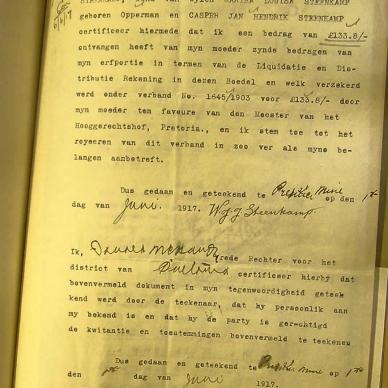 geboren Opperman en CASPER JAN HENDRIK STEENKAMP
certificeer hiermede dat ik een bedrag van £133.8/-
ontvangen heeft van myn moeder zynde bedragen van
myn erfportie in termen van de Liquidatie en Dis-
tributie Rekening in dezen Boedel en welk verzekerd
werd onder verband No. 1645/1903 voor £133.8/- door
myn moeder ten faveure van den Meester van het
Hooggerechtshof, Pretoria., en ik stem toe tot het
royeeren van dit verband in zoo ver als myne be-
langen aanbetreft.
Dus gedaan en geteekend te Premier Mine op den 1ste
dag van Juni 1917. W J J Steenkamp
Ik, Vrede Rechter voor het
district van certificeer hierby dat
bovenvermeld dokument in myn tegenwoordigheid geteek
kend werd door de teekenaar, dat hy persoonlik aan
my bekend is en dat hy de party is gerechtigd
de kwitantie en toestemmingen bovenvermeld te teekenen
Dus gedaan en geteekend te Premier Mine op
den 1ste dag van Juni 1917.